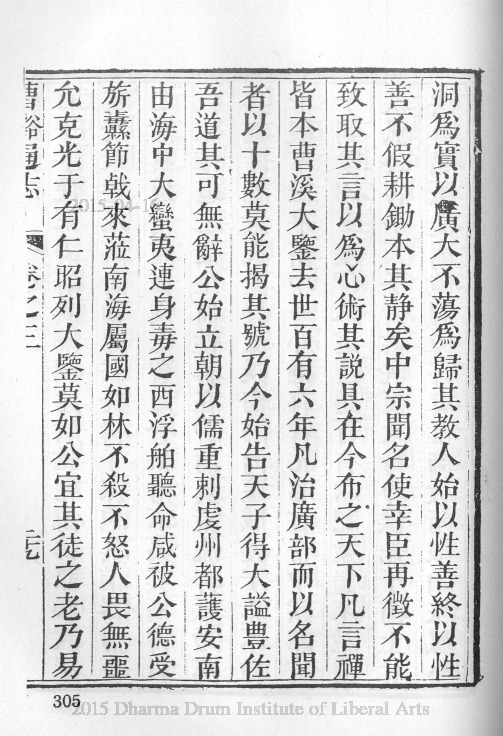 洞爲實以廣大不蕩爲歸其教人始以性善終以性
善不假耕鋤本其静矣中宗聞名使幸臣再徵不能
致取其言以爲心術其説具在今布之天下凡言禪
皆本曹溪大鑒去世百有六年凡治廣部而以名聞
者以十數莫能揭其號乃今始告天子得大謚豊佐
吾道其可無辭公始立朝以儒重刺虔州都護安南
由海中大蠻夷連身毒之西浮舶聽命咸被公德受
旂纛節戟來蒞南海屬國如林不殺不怒人畏無噩
允克光于有仁昭列大鑒莫如公宜其徒之老乃易
曹谿通志 卷之三 二九
305
2015 Dharma Drum Institute of Liberal Arts